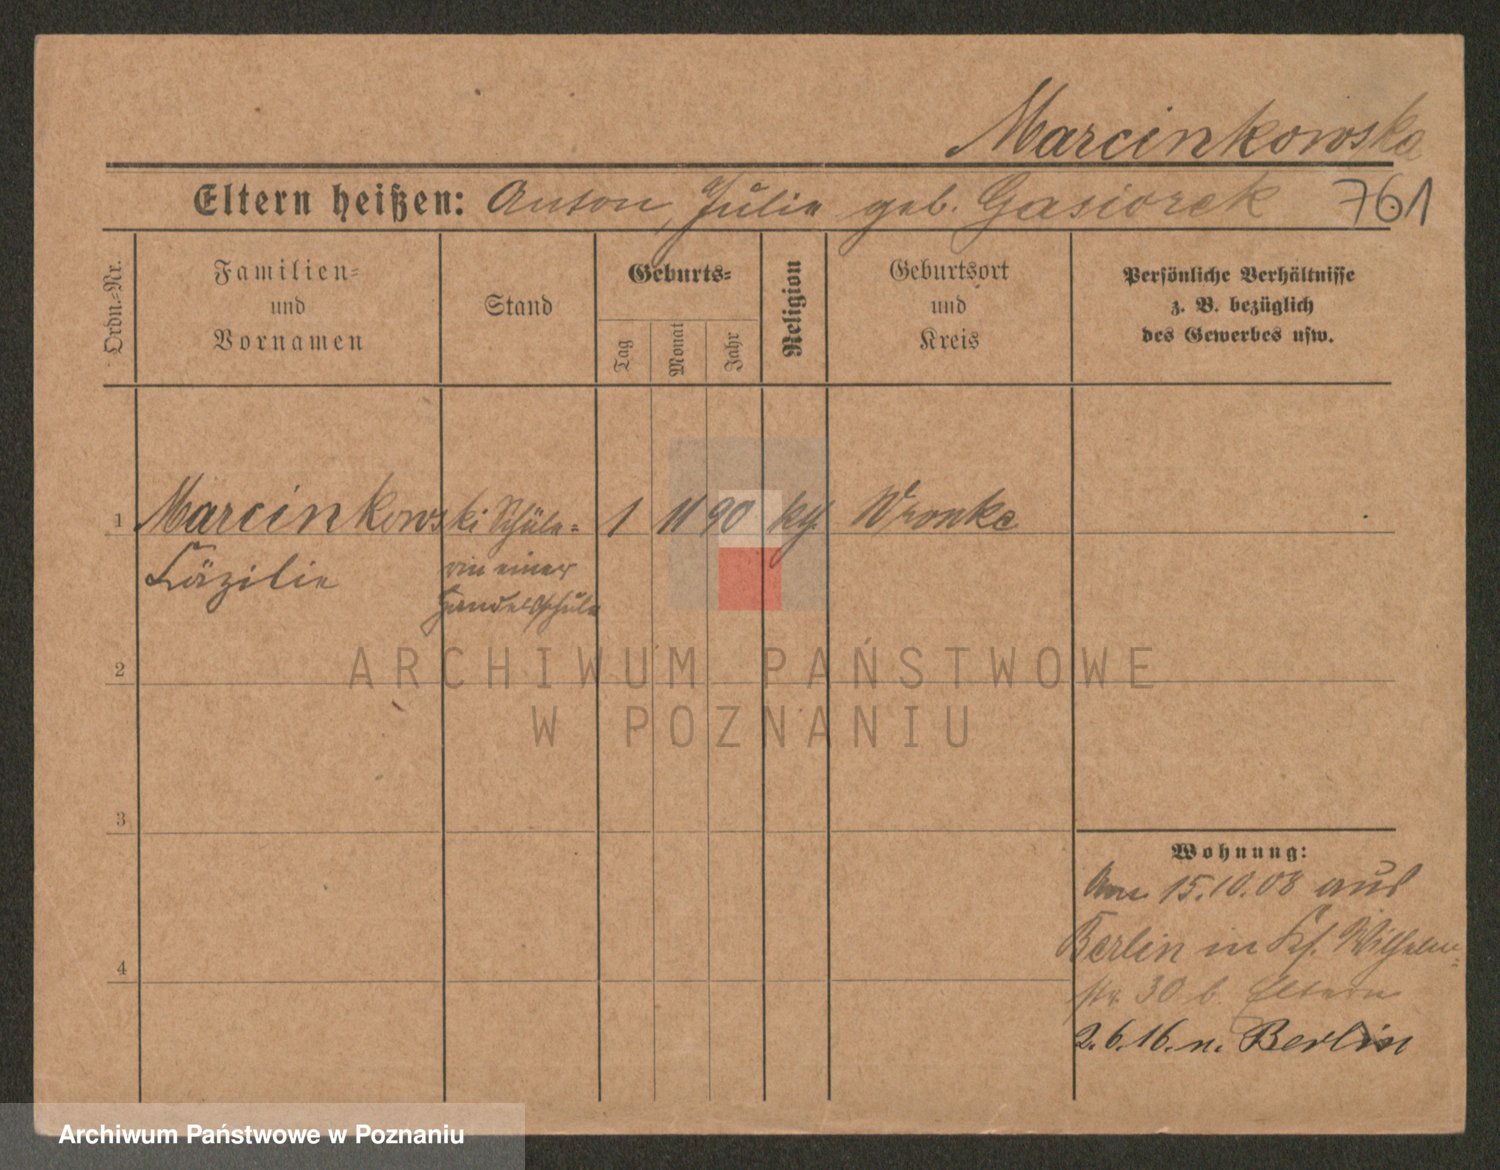 Marcinkowska
Eltern heißen: Anton, Julie geb. Gasiorek 761
Ordn.-Nr.
Familien-
und
Vornamen
Stand
Geburts-
Tag
Monat
Jahr
Religion
Geburtsort
und
Kreis
Persönliche Verhältnisse
z. B. bezüglich
des Gewerbes usw.
1 Marcinkowski Schüle- 1 11 90 kth. Wronke
Cäzilie rin einer
Handelsschule
2
ARCHIWUM PAŃSTWOWE
W POZNANIU
3
Wohnung:
Am 15.10.08 aus
Berlin in Wilhelm-
str. 30 b. Eltern
4
2.6.16. n. Berlin
Archiwum Państwowe w Poznaniu